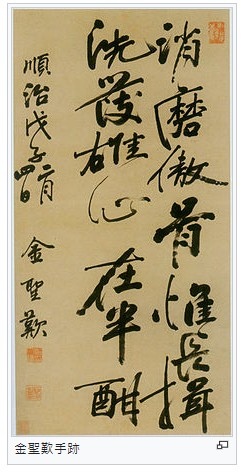 消磨傲骨惟長揖
洗發雄心在半酣
順治戊子二月四日
金聖歎
金聖歎手跡